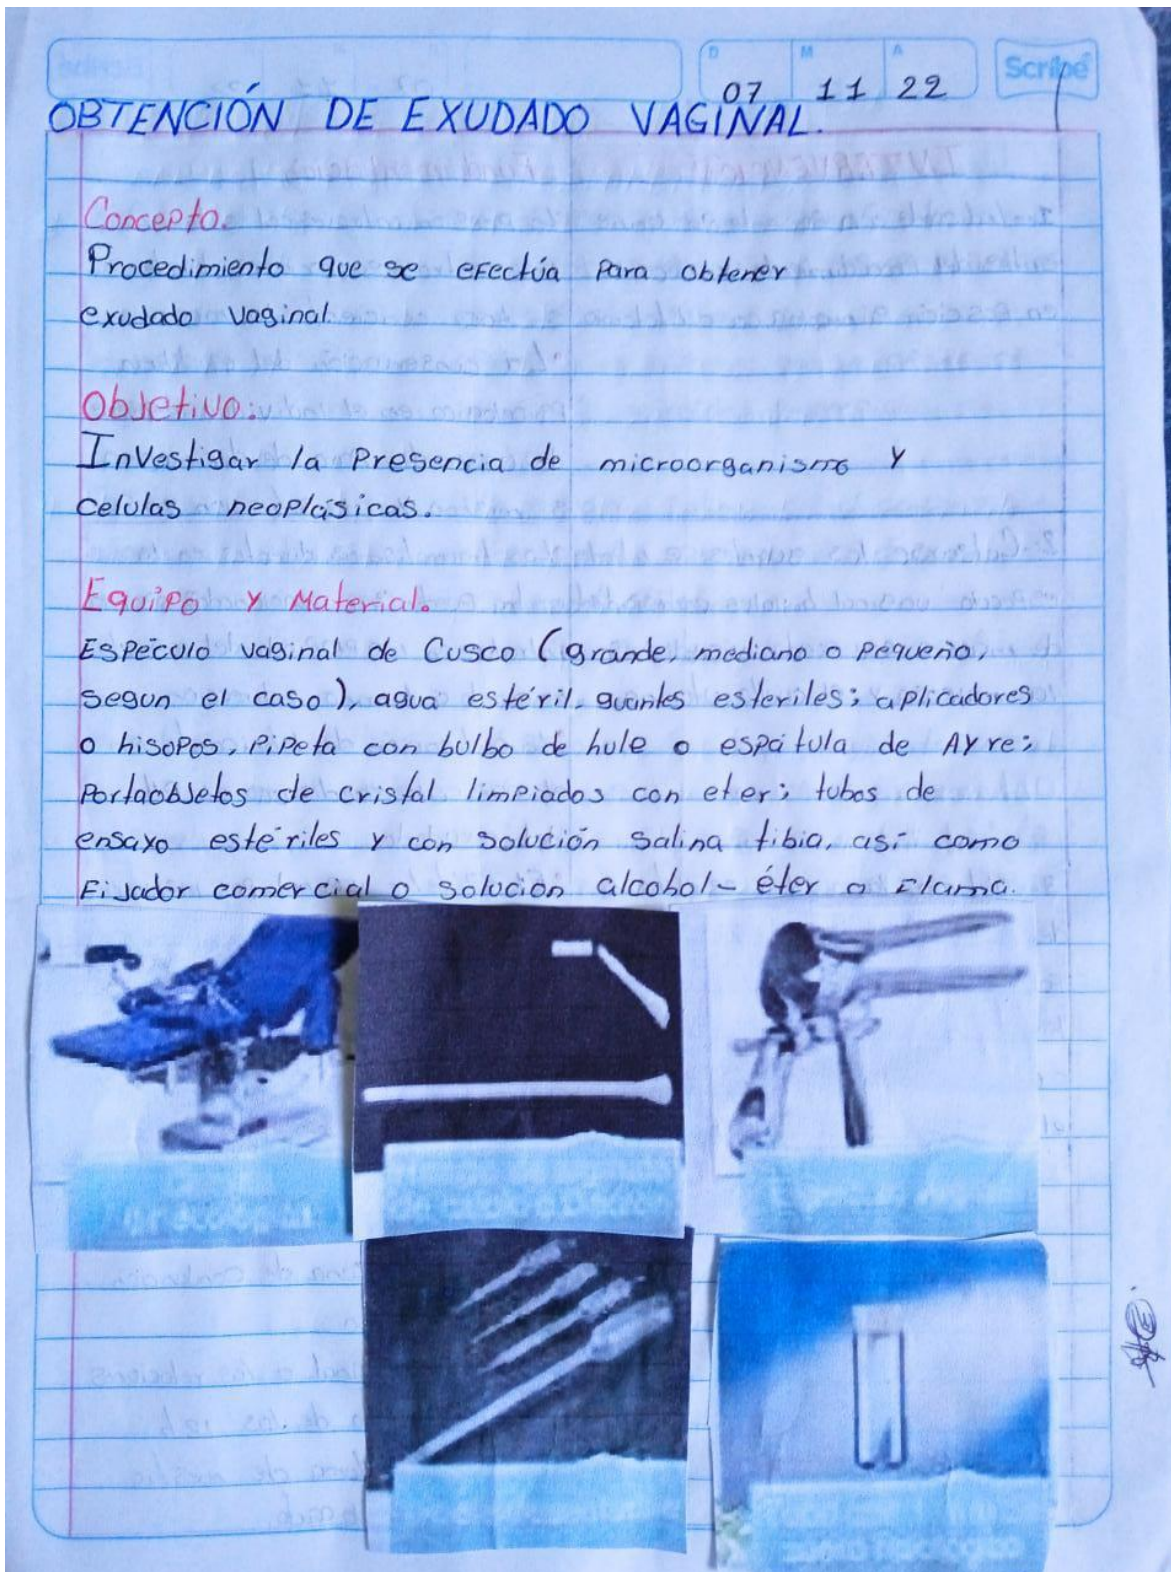 D M A
Scribe
07 11 22
OBTENCIÓN DE EXUDADO VAGINAL.
Concepto.
Procedimiento que se efectúa para obtener
exudado vaginal.
Objetivo:
Investigar la presencia de microorganismo y
celulas neoplásicas.
Equipo y Material.
Espéculo vaginal de Cusco (grande, mediano o pequeño,
segun el caso), agua estéril, guantes esteriles; aplicadores
o hisopos, pipeta con bulbo de hule o espátula de Ayre;
portaobjetos de cristal limpiados con eter; tubos de
ensayo estériles y con solución salina tibia, así como
Fijador comercial o solución alcohol- éter o Flama.